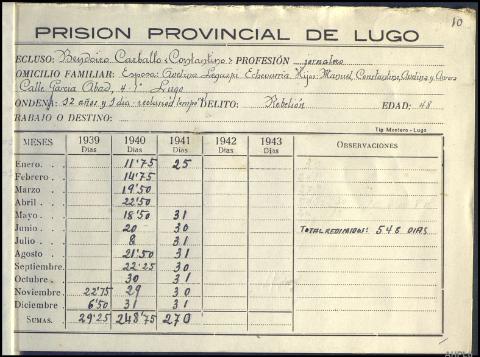 10
PRISION PROVINCIAL DE LUGO
ECLUSO: Bendoiro Carballo "Constantino" PROFESIÓN jornalero
OMICILIO FAMILIAR: Esposa: Avelina Echevarria Hijos: Manuel, Constantino, Avelina y
Calle Garcia Abad, 4-1º Lugo
ONDENA: 12 años y 1 dia reclusión tempal DELITO: Rebelión EDAD: 48
RABAJO O DESTINO:
Tip. Montero - Lugo
MESES 1939 Días 1940 Días 1941 Días 1942 Días 1943 Días OBSERVACIONES
Enero. . . 11'75 25
Febrero . . 14'75
Marzo . . 19'50
Abril . . . 22'50
Mayo . . . 18'50 31
Junio . . . 20 30 TOTAL REDIMIDOS: 548 DIAS
Julio . . . 8 31
Agosto . . 21'50 31
Septiembre. 22'25 30
Octubre. . 30 31
Noviembre . 22'75 29 30
Diciembre . 6'50 31 31
SUMAS. 29'25 248'75 270